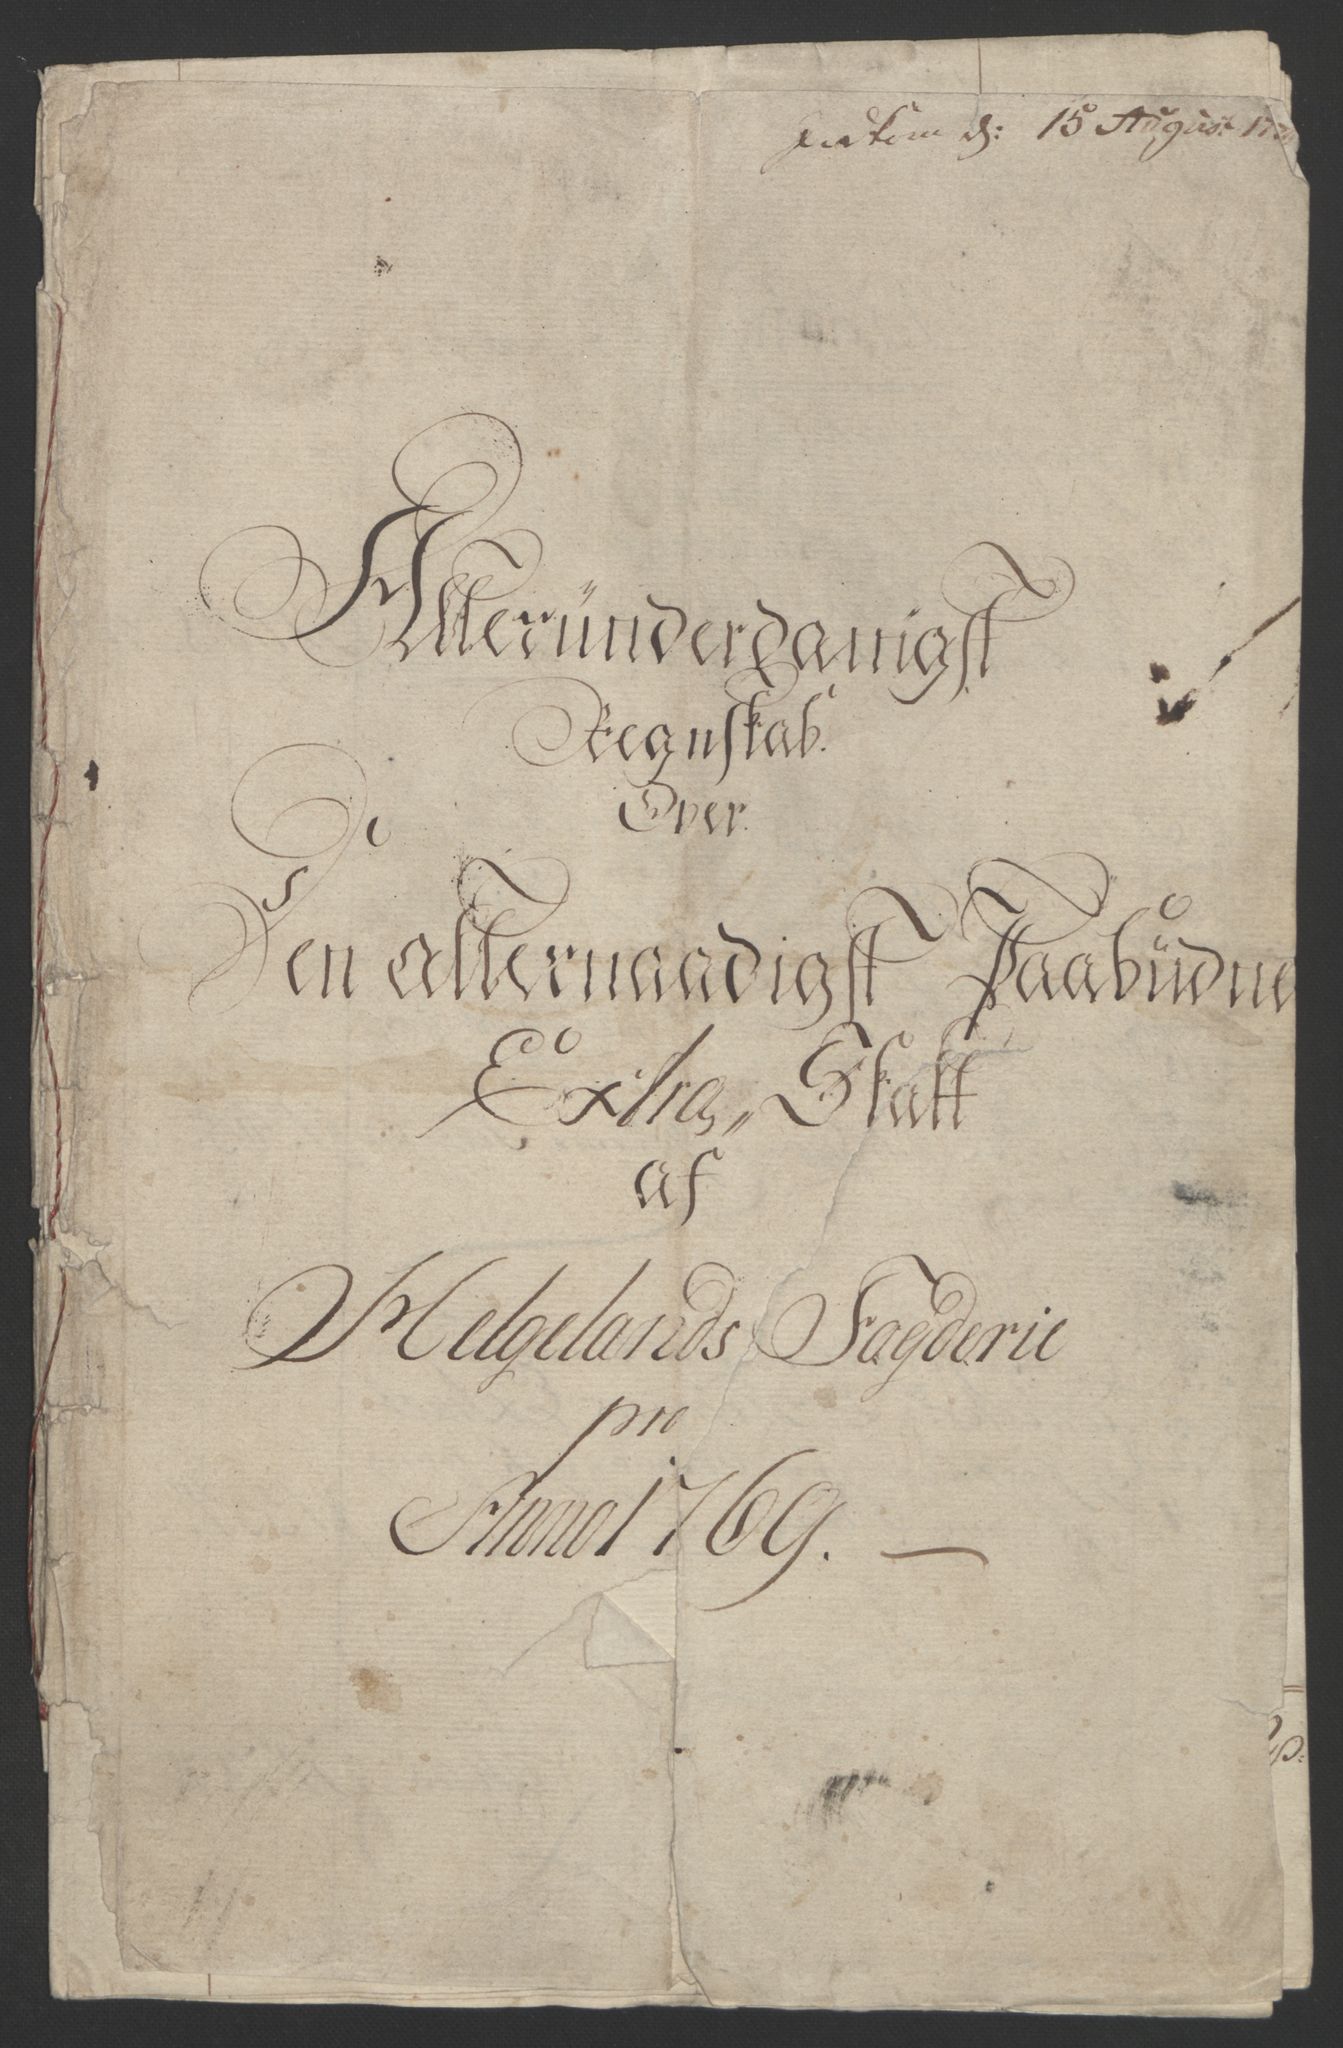 Indkom d: 15 August
Alleründerdanigst
Regnskab.
Over.
Den allernaadigst Paabüdne
Extra„ Skatt
af
Helgelands Fogderie
pro
Anno 1769.